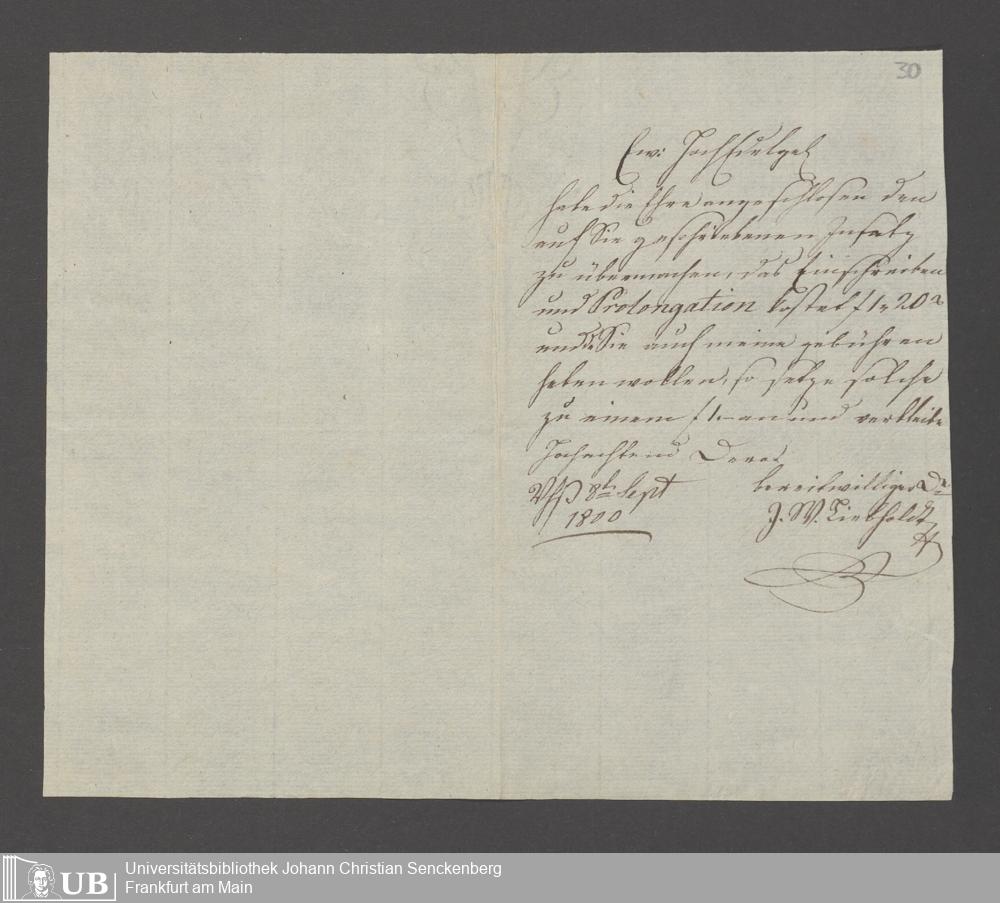 30
Ew: HochEdelgeb
habe die Ehre angeschlosen den
auf Sie geschriebenen Insatz
zu übermachen, das Einschreiben
und Prolongation kostet f 1„ 20 x
und Sie auch meine gebühren
haben wollen, so setze solche
zu einem f 1 — an und verbleibe
Hochachtend Deroc
8te Sept bereitwilliger Dr
1800 J. W. Liebholdt
UB
Universitätsbibliothek Johann Christian Senckenberg
Frankfurt am Main